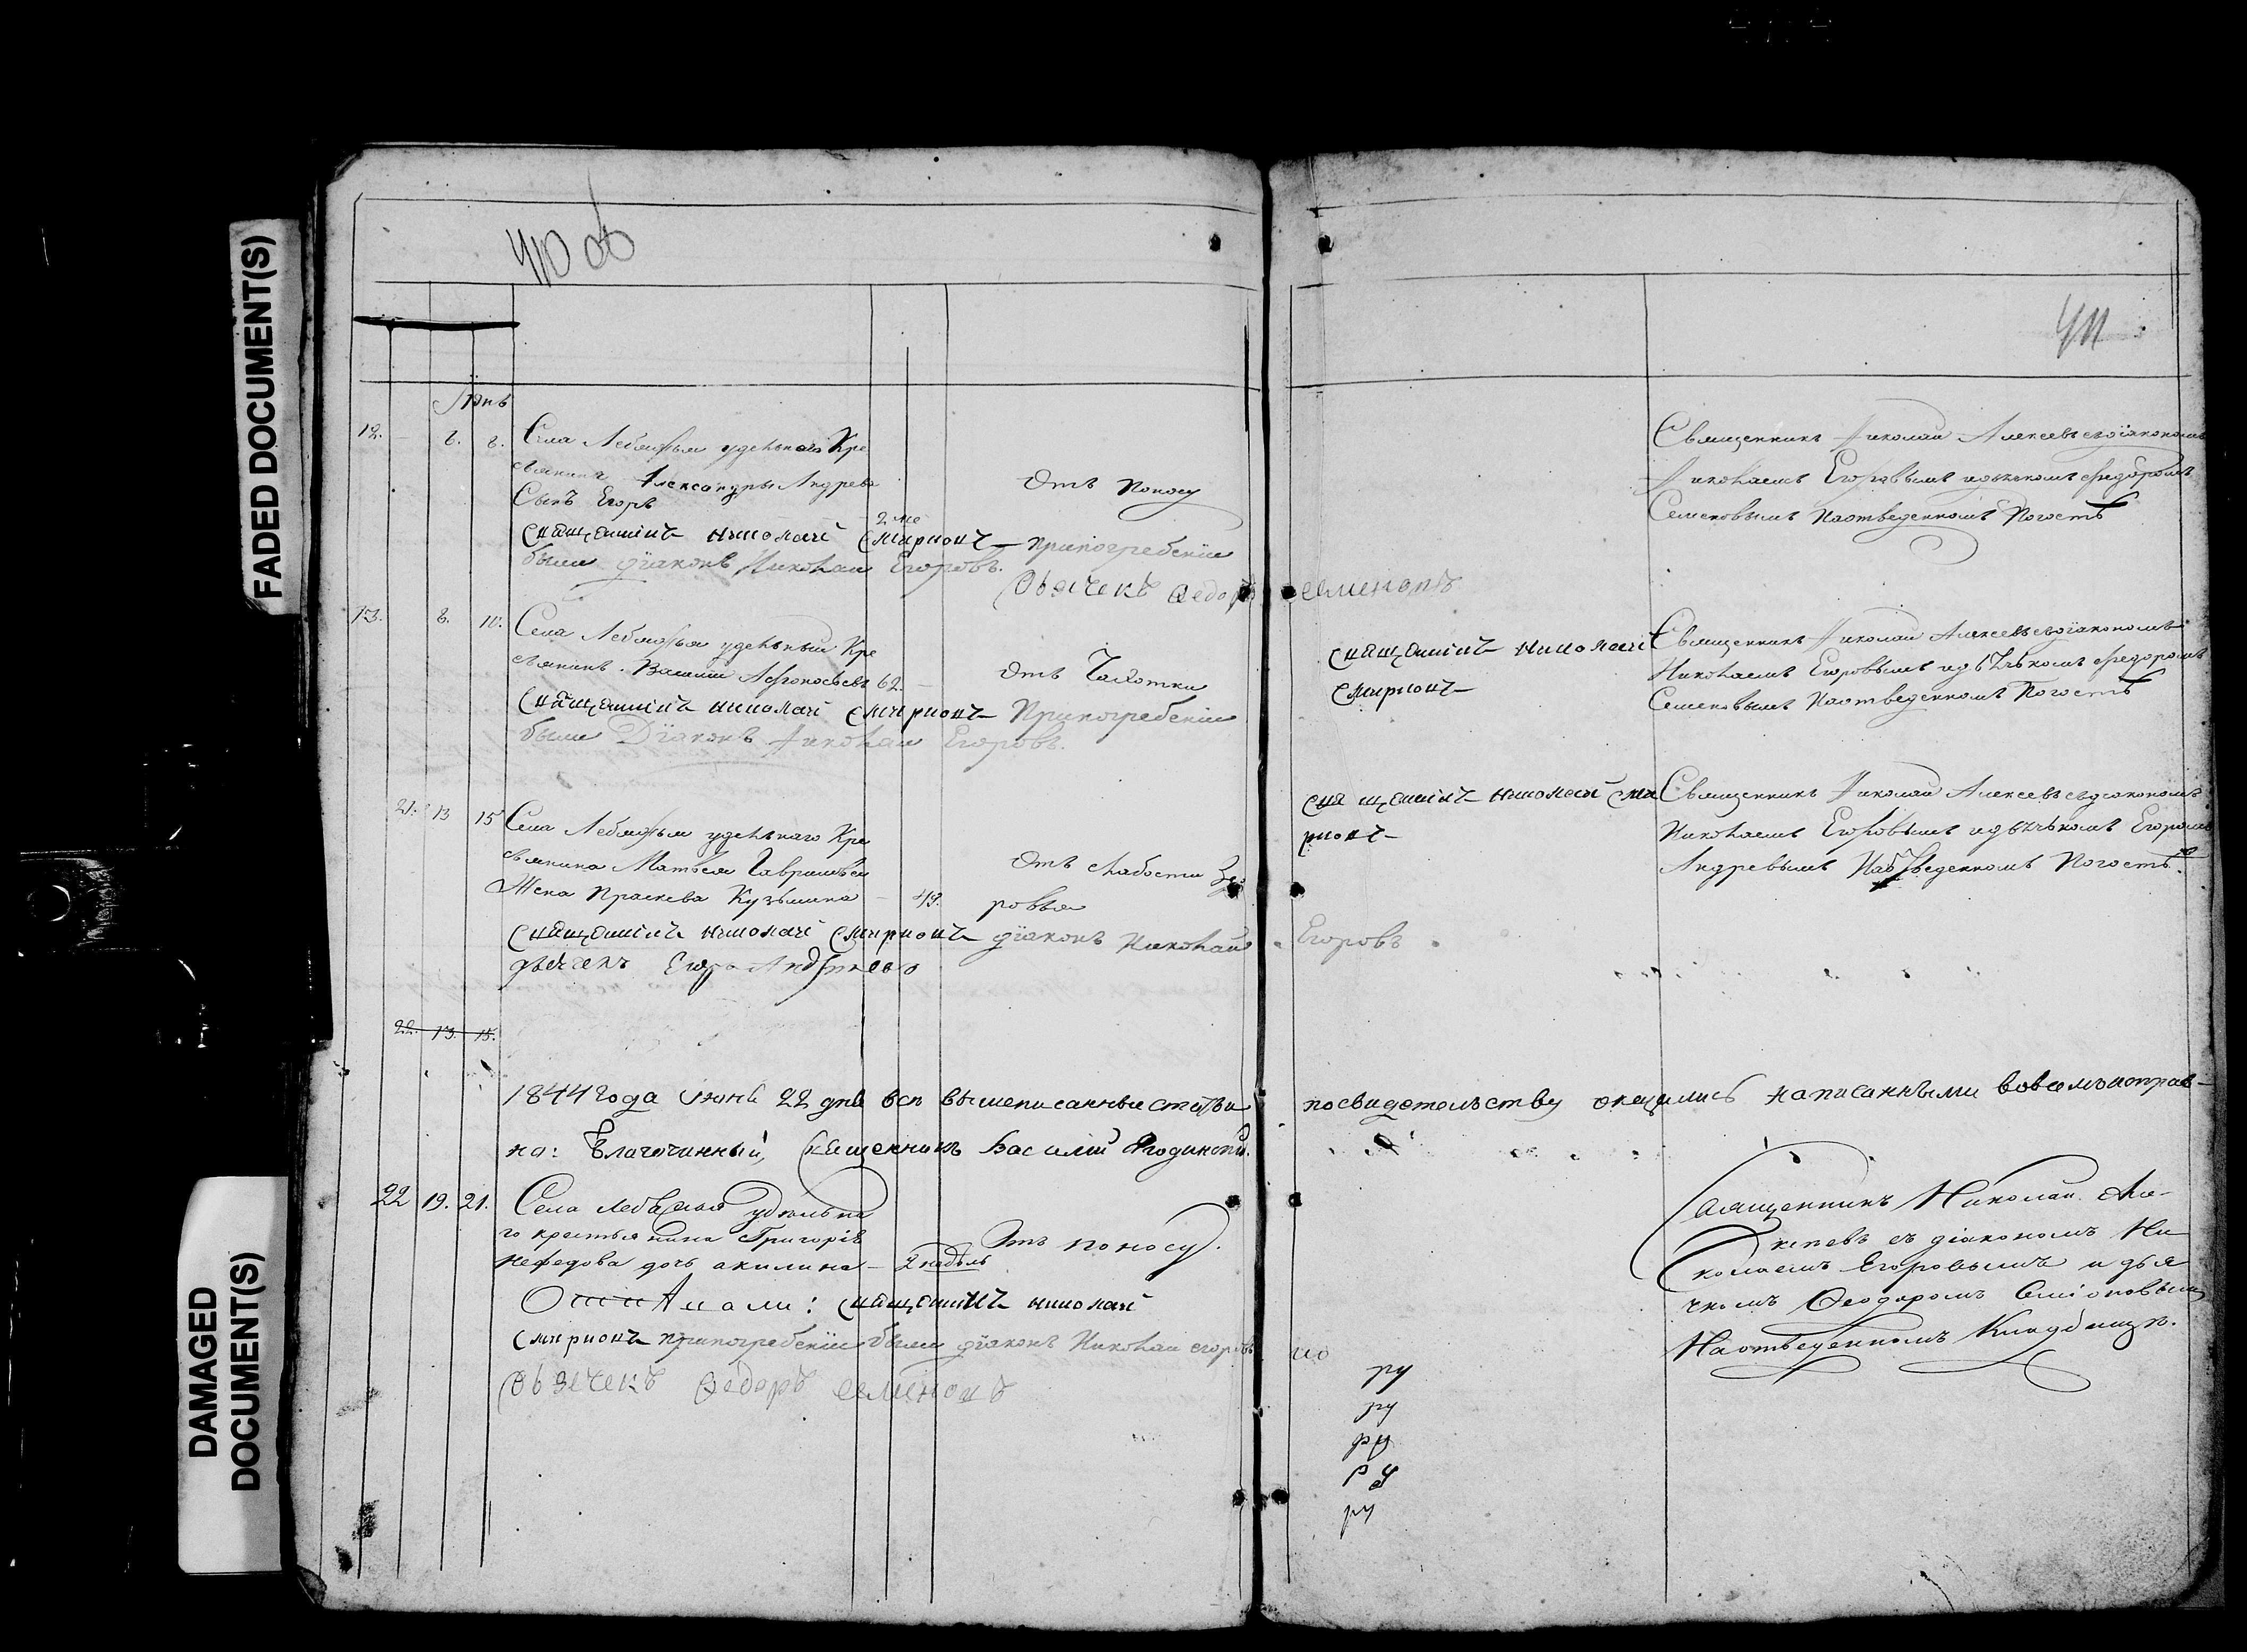 FADED DOCUMENT(S)
DAMAGED
DOCUMENT(S)
410 об
411
Июнь
12. 6. 8. Села Лебяжья удельнаго Кре
стьянина Александры Андреева
Сынъ Егоръ
2 ме
Отъ поносу
Священникъ Николай Смирновъ при погребеніи
были діаконъ Николай Егоровъ.
Дьячекъ Федоръ Семеновъ
Священникъ Николай Алексевъ съ діакономъ
Николаемъ Егоровымъ и дьякомъ Федоромъ
Семеновымъ На отведенномъ Погостѣ
13. 8. 10. Села Лебяжья удельный Кре
стьянинъ 62.
Отъ Чахотки
Священникъ Николай Смирновъ При погребеніи
были Діаконъ Николай Егоровъ.
Священникъ Николай
Смирновъ
Священникъ Николай Алексевъ съ діакономъ
Николаемъ Егоровымъ и дьячькомъ Федоромъ
Семеновымъ На отведенномъ Погостѣ
21. 13 15 Села Лебяжья удельнаго Кре
стьянина Матвея Гаврилова
Жена Праскева Кузьмина 49.
Отъ слабости Здо
ровья
Священникъ Николай Смирновъ діаконъ Николай Егоровъ
дьячекъ Егоръ Андреевъ
Священникъ Николай Сми
рновъ
Священникъ Николай Алексевъ съ діакономъ
Николаемъ Егоровымъ и дьячькомъ Егоромъ
Андревымъ На отведенномъ Погостѣ.
22. 13. 15.
1844 года Июня 22 дня всѣ вышеписанные статьи по свидетельству оказались написанными во всемъ исправ-
но: Благочинный, Священникъ Василій
22 19. 21. Села Лебяжья удѣльна
го крестьянина Григорія
Нефедова дочь акилина - 2 недѣль
Отъ поносу.
Священникъ Николай
Смирновъ при погребеніи были діаконъ Николай егоровъ
Дьячекъ Федоръ Семеновъ
Священникъ Николай Але-
ксѣевъ съ діакономъ Ни
колаемъ Егоровымъ и дья
чкомъ Феодоромъ Семіоновымъ
На отведенномъ Кладбищѣ.
но
ру
ру
ру
ру
ру